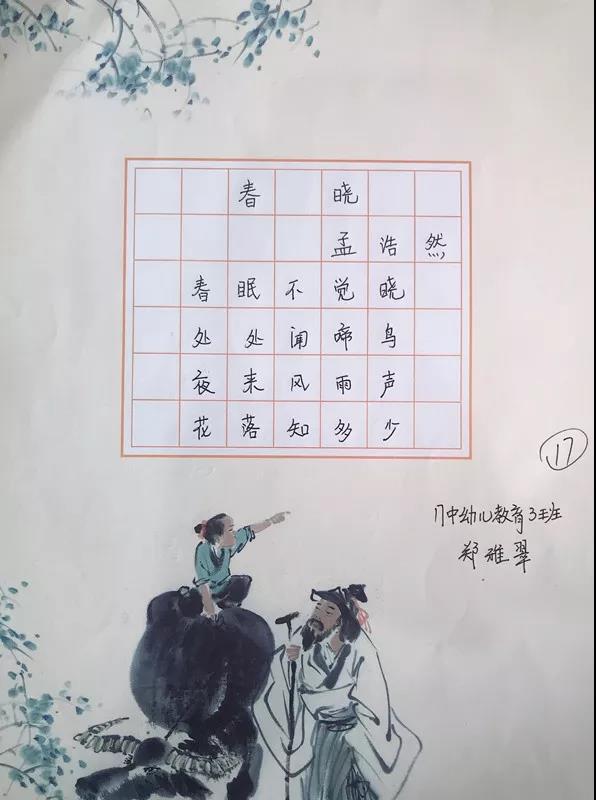 春晓
孟浩然
春眠不觉晓
处处闻啼鸟
夜来风雨声
花落知多少
17
17中幼儿教育3班
郑雅翠